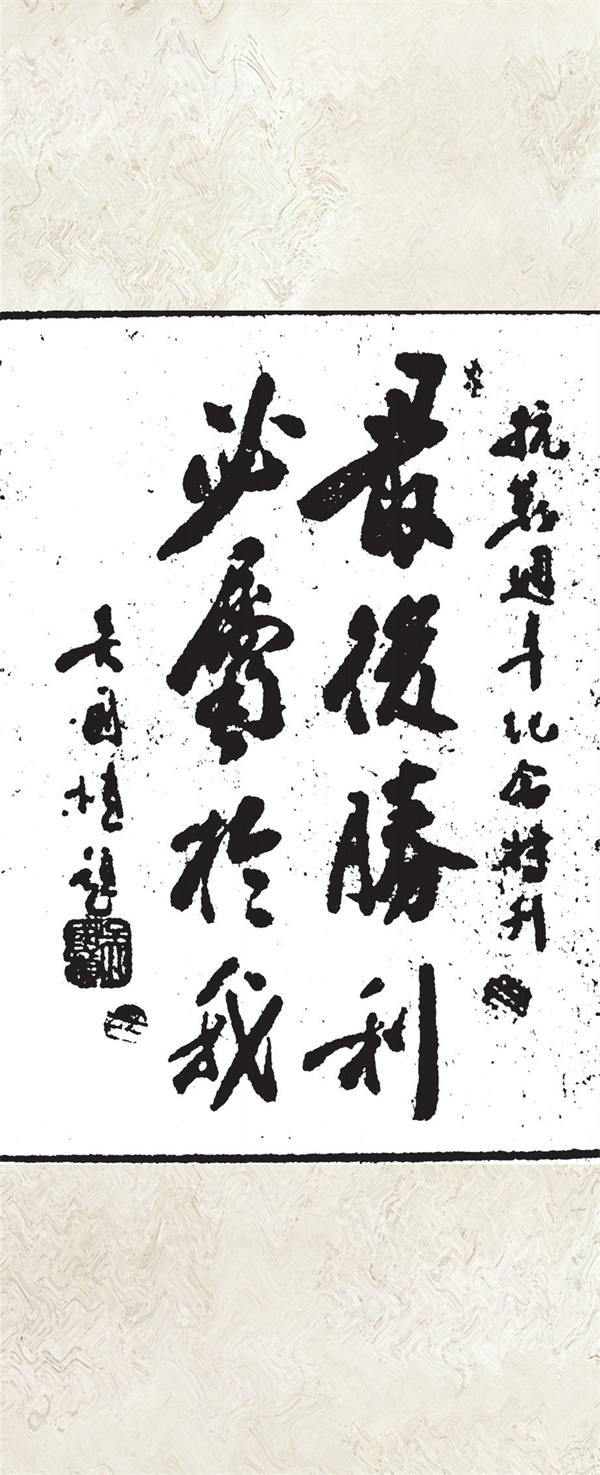 抗戰週年紀念特刊
最後勝利
必屬於我
吳國楨題